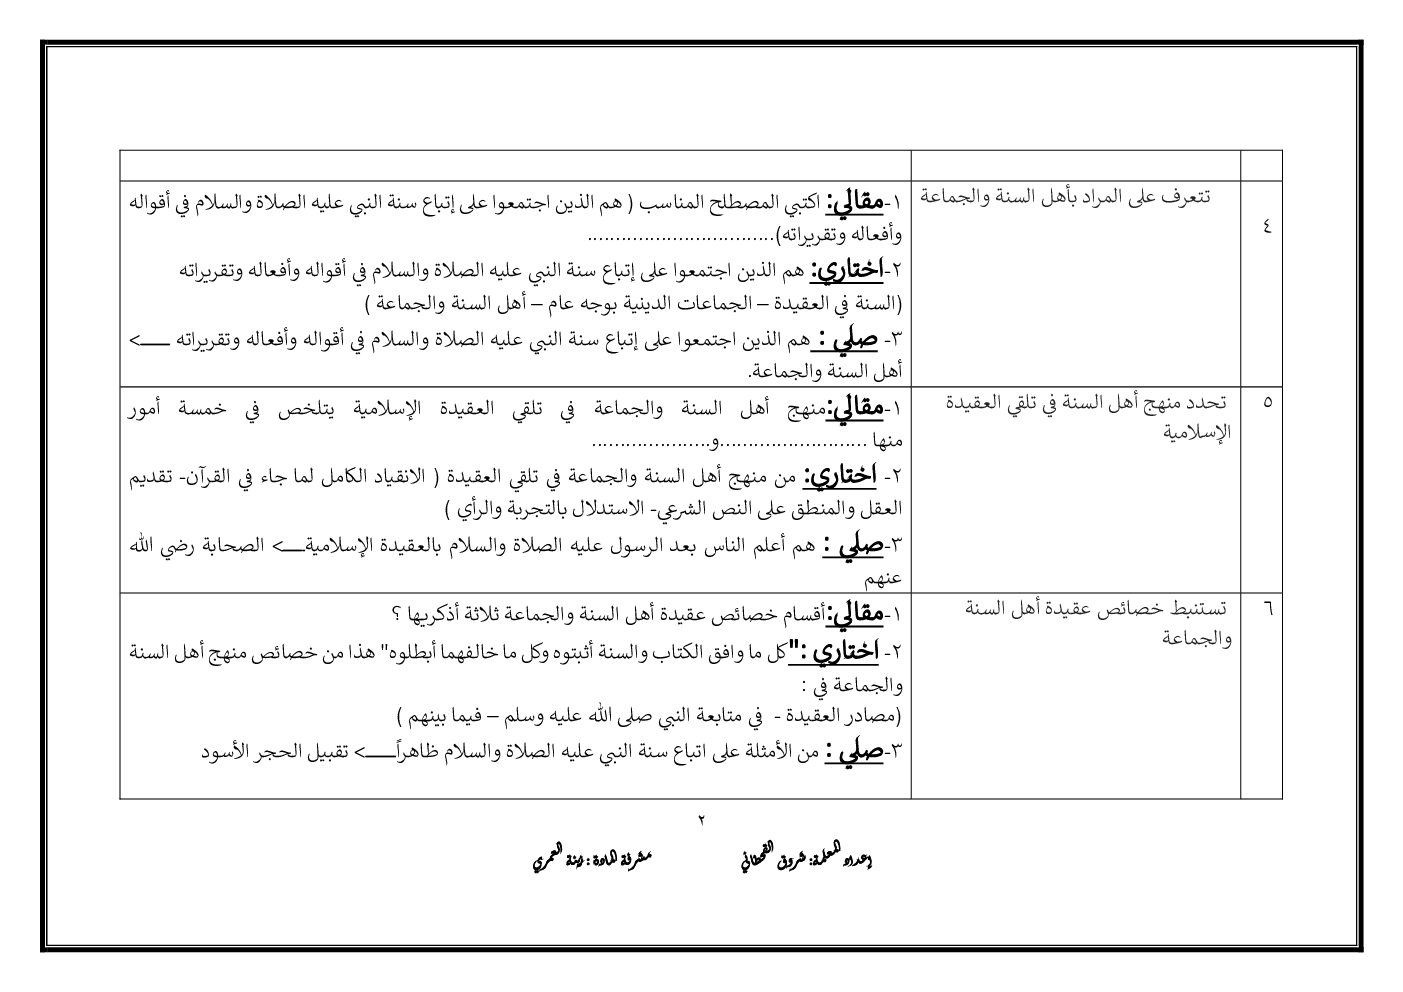 ٤
تتعرف على المراد بأهل السنة والجماعة
١-مقالي: اكتبي المصطلح المناسب ( هم الذين اجتمعوا على إتباع سنة النبي عليه الصلاة والسلام في أقواله
وأفعاله وتقريراته).................................
٢-اختاري: هم الذين اجتمعوا على إتباع سنة النبي عليه الصلاة والسلام في أقواله وأفعاله وتقريراته
(السنة في العقيدة – الجماعات الدينية بوجه عام – أهل السنة والجماعة )
٣- صلي : هم الذين اجتمعوا على إتباع سنة النبي عليه الصلاة والسلام في أقواله وأفعاله وتقريراته ـــــ>
أهل السنة والجماعة.
٥
تحدد منهج أهل السنة في تلقي العقيدة
الإسلامية
١-مقالي:منهج أهل السنة والجماعة في تلقي العقيدة الإسلامية يتلخص في خمسة أمور
منها ..........................و.....................
٢- اختاري: من منهج أهل السنة والجماعة في تلقي العقيدة ( الانقياد الكامل لما جاء في القرآن- تقديم
العقل والمنطق على النص الشرعي- الاستدلال بالتجربة والرأي )
٣-صلي : هم أعلم الناس بعد الرسول عليه الصلاة والسلام بالعقيدة الإسلاميةـــــ> الصحابة رضي الله
عنهم
٦
تستنبط خصائص عقيدة أهل السنة
والجماعة
١-مقالي:أقسام خصائص عقيدة أهل السنة والجماعة ثلاثة أذكريها ؟
٢- اختاري :"كل ما وافق الكتاب والسنة أثبتوه وكل ما خالفهما أبطلوه" هذا من خصائص منهج أهل السنة
والجماعة في :
(مصادر العقيدة - في متابعة النبي صلى الله عليه وسلم – فيما بينهم )
٣-صلي : من الأمثلة على اتباع سنة النبي عليه الصلاة والسلام ظاهراًـــــ> تقبيل الحجر الأسود
٢
إعداد المعلمة: شروق القحطاني مشرفة المادة : نبنة العمري